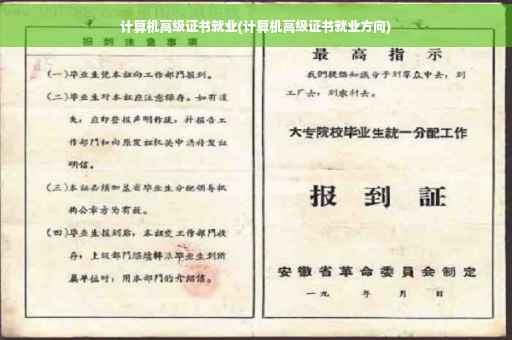 计算机高级证书就业(计算机高级证书就业方向)
报到注意事项
(一)毕业生凭本证向工作部门报到。
(二)毕业生对本证应注意保存。如有遗
失,应即登报声明作废,并报告工
作部门和向原发证机关申请补发证
明信。
(三)本证必须加盖省毕业生分配领导机
构公章方为有效。
(四)毕业生报到后,本证交工作部门收
存;上级部门
毕业生到所
属单位时,用本部门的介绍信。
最高指示
我们提倡知识分子到群众中去,到
工厂去,到农村去。
大专院校毕业生統一分配工作
报到証
安徽省革命委員会制定
一九 年 月 日